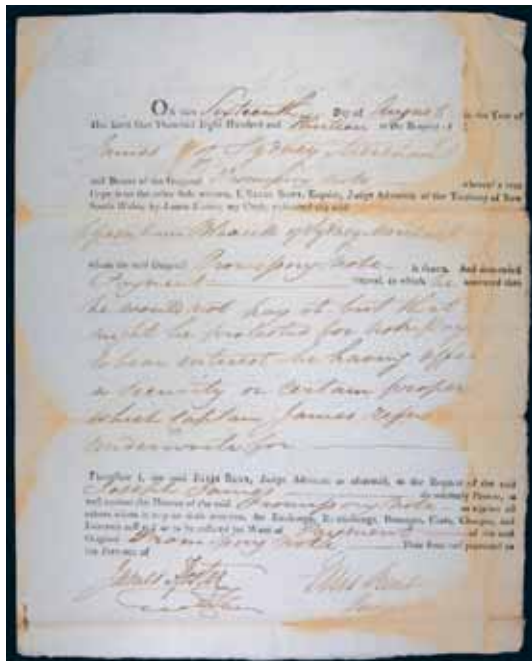 On this Sixteenth Day of August in the Year of
Our Lord One Thousand Eight Hundred and at the Request of
James of Sydney
and Bearer of the Original Promissory Note whereof a true
Copy is on the other side written, I, Ellis Bent, Esquire, Judge Advocate of the Territory of New
South Wales, by James Foster, my Clerk, exhibited the said
of Sydney
whom the said Original Promissory Note is drawn. And demanded
Payment thereof, to which he answered that
he would not pay it but that
might be protested for
to bear interest he having offer
a security on certain proper
which Captain James refu
underwrite for
Therefore I, the said Ellis Bent, Judge Advocate as aforesaid, at the Request of the said
Joseph James do solemnly Protest, as
well against the Drawer of the said Promissory note as against all
others whom it may or doth concern, for Exchange, Re-exchange, Damages, Costs, Charges, and
Interests suffered or to be suffered for Want of Payment of the said
Original Promissory note Thus done and protested in
the Presence of
James Foster Ellis Bent